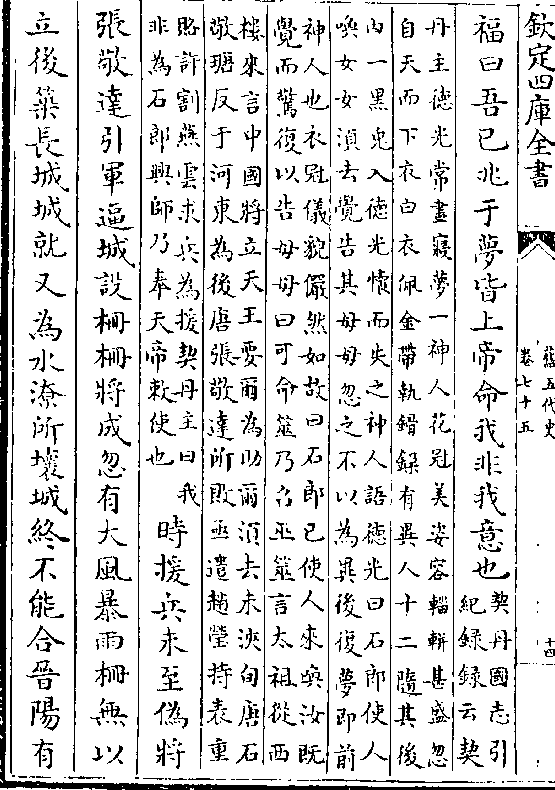 欽定四庫全書
舊五代史
卷七十五
十四
福曰吾已兆于夢皆上帝命我非我意也
契丹國志引
紀錄錄云契
丹主德光常晝寢夢一神人花冠美姿容輜軿甚盛忽
自天而下衣白衣佩金帶執䤪錄有異人十二隨其後
内一黑兎入德光懷而失之神人語德光曰石郎使人
喚女女湏去覺告其母母忽之不以為異後復夢即前
神人也衣冠儀貌儼然如故曰石郎已使人來喚汝既
覺而驚復以告母母曰可命筮乃召巫筮言太祖從西
樓來言中國將立天王要爾為助爾湏去未浹旬唐石
敬瑭反于河東為後唐張敬達所敗亟遣趙瑩持表重
賂許割燕雲求兵為援契丹主曰我
非為石郎興師乃奉天帝敕使也
時援兵未至偽將
張敬達引軍逼城設柵柵將成忽有大風暴雨柵無以
立後築長城城就又為水潦所壞城終不能合晉陽有